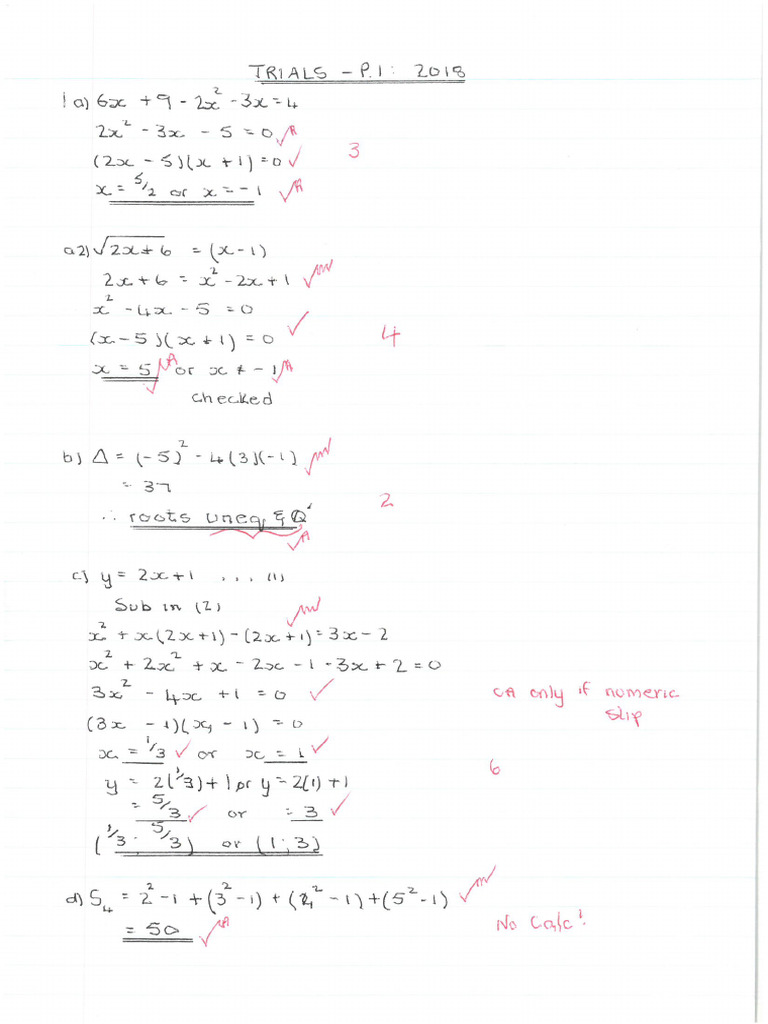 TRIALS – P.1: 2018
1a) 6x + 9 - 2x² - 3x = 4
2x² - 3x - 5 = 0 ✓A
(2x - 5)(x + 1) = 0 ✓
3
x = 5/2 or x = -1 ✓A
a2) √(2x+6) = (x-1)
2x + 6 = x² - 2x + 1 ✓m
x² - 4x - 5 = 0
(x - 5)(x + 1) = 0 ✓
4
x = 5 ✓A ✓ or x ≠ -1 ✓A
checked
b) Δ = (-5)² - 4(3)(-1) ✓m
= 37
2
∴ roots uneq, & Q'
✓A
c) y = 2x + 1 ... (1)
Sub in (2)
x² + x(2x+1) - (2x+1) = 3x - 2 ✓m
x² + 2x² + x - 2x - 1 - 3x + 2 = 0
3x² - 4x + 1 = 0 ✓
CA only if numeric
slip
(3x - 1)(x - 1) = 0
x = 1/3 ✓ or x = 1 ✓
6
y = 2(1/3) + 1 or y = 2(1) + 1
= 5/3 ✓ or = 3 ✓
(1/3 ; 5/3) or (1 ; 3)
d) S₄ = 2² - 1 + (3² - 1) + (4² - 1) + (5² - 1) ✓m
= 50 ✓A
No Calc!